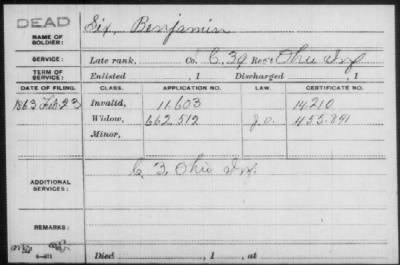 DEAD
NAME OF SOLDIER: Six, Benjamin
SERVICE: Late rank, Co. C. 39 Reg't Ohio Inf
TERM OF SERVICE: Enlisted , 1 Discharged , 1
DATE OF FILING. CLASS. APPLICATION NO. LAW. CERTIFICATE NO.
1863 Feb. 23 Invalid, 11.603 14210
Widow, 662512 g.a. 455.891
Minor,
ADDITIONAL SERVICES: C 3, Ohio Inf.
REMARKS:
Died , 1 , at